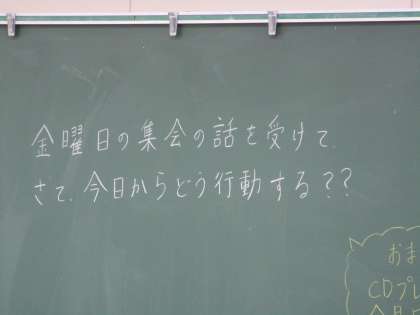 金曜日の集会の話を受けて、
さて、今日からどう行動する??
おま
CDプレ